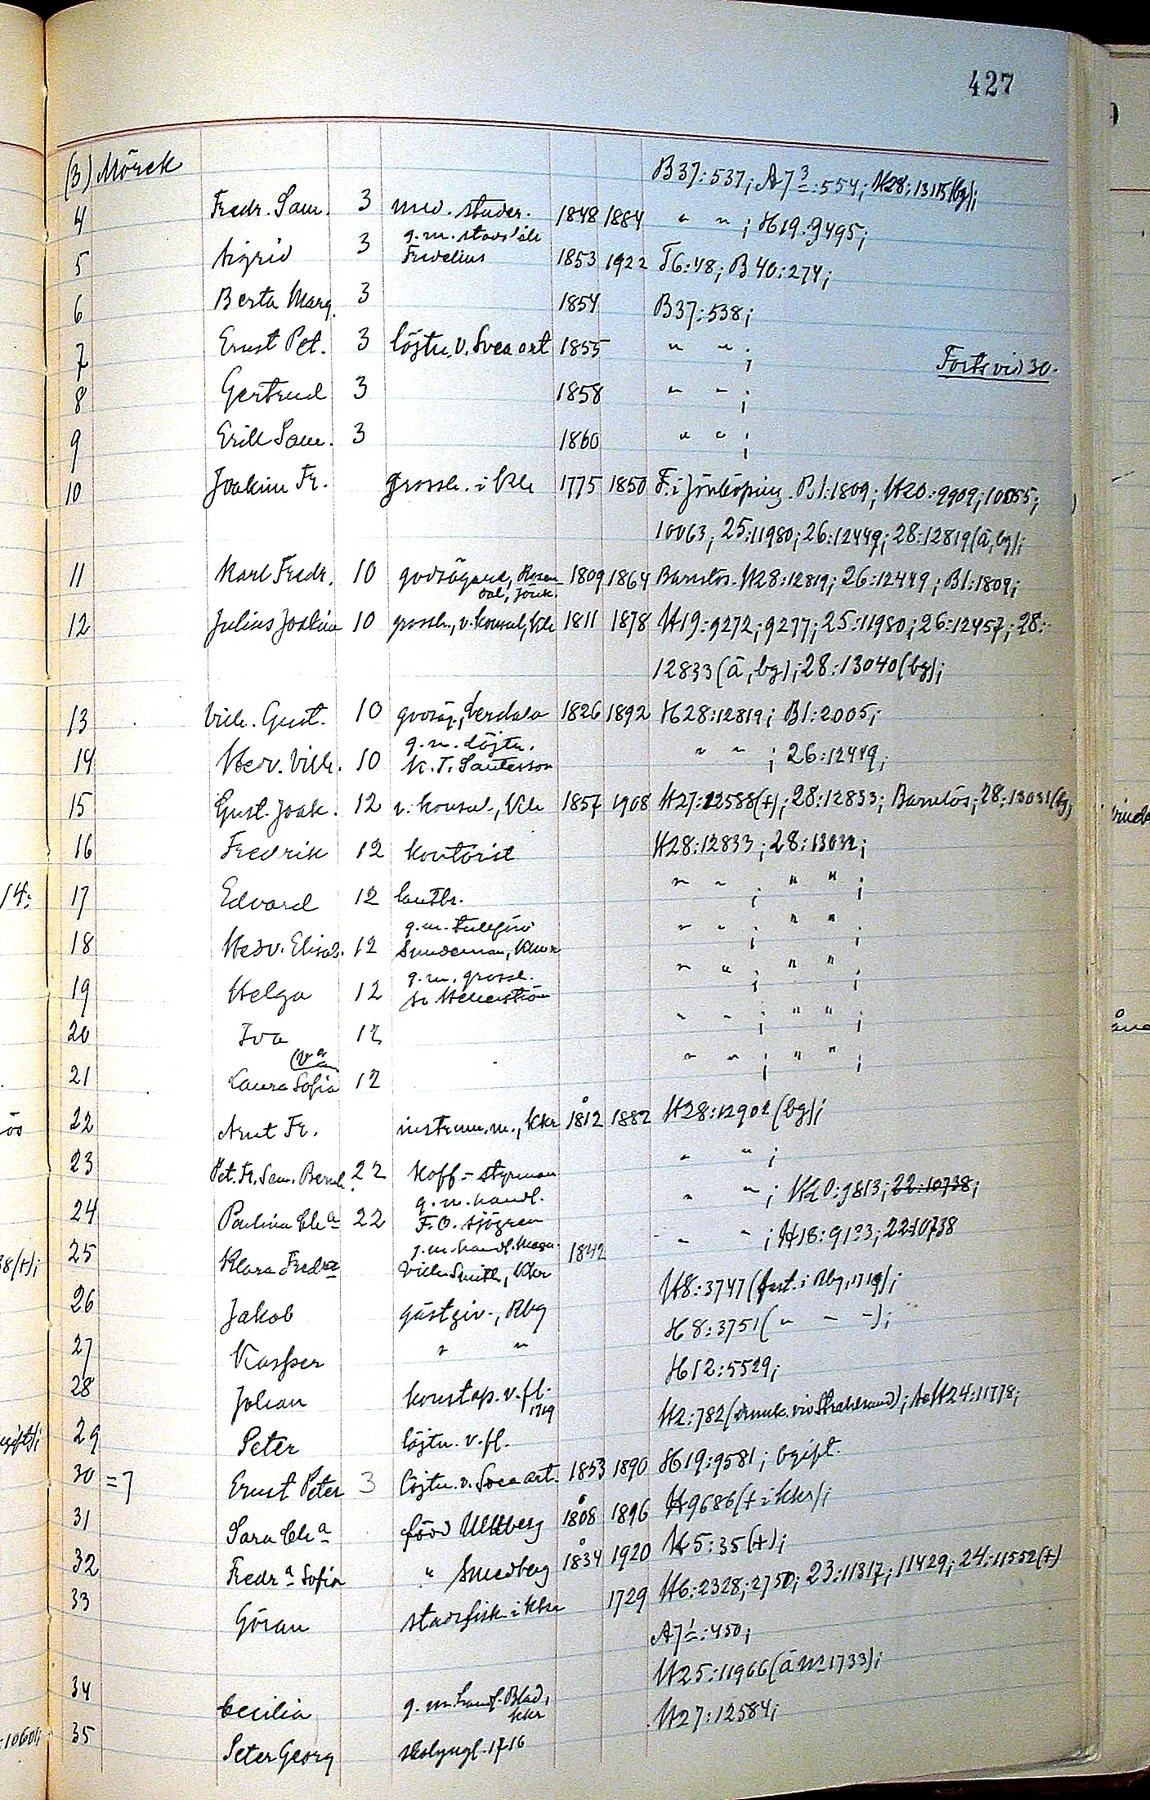 427
(3) Mörck B37:537; A7³:554; H28:13115(bg);
4 Fredr. Sam. 3 med. studer. 1848 1884 " " ; H19:9495;
5 Sigrid 3 g.m. stadsläk Fredelius 1853 1922 T6:48; B40:274;
6 Berta Marg. 3 1854 B37:538;
7 Ernst Pet. 3 löjtn. v. Svea art 1855 " " ; Forts vid 30.
8 Gertrud 3 1858 " " ;
9 Erik Sam. 3 1860 " " ;
10 Joakim Fr. grossh. i Kkr 1775 1850 F. i Jönköping. B1:1809; H20:9909; 10055;
10063; 25:11980; 26:12449; 28:12819(ä, bg);
11 Karl Fredr. 10 godsägare, Rosendal, Jönk. 1809 1864 Barnlös. H28:12819; 26:12449; B1:1809;
12 Julius Joakim 10 grossh., v. konsul, Kkr 1811 1878 H19:9272; 9277; 25:11980; 26:12457; 28:
12833(ä, bg); 28:13040(bg);
13 Vilh. Gust. 10 godsäg., 1826 1892 H28:12819; B1:2005;
14 Hedv. Vilh. 10 g.m. löjtn. K.T. Santesson " " ; 26:12449;
15 Gust. Joak. 12 v. konsul, Kkr 1857 1908 H27:12588(+); 28:12833; Barnlös; 28:13031(bg)
16 Fredrik 12 kontorist H28:12833; 28:13032;
17 Edvard 12 lantbr. " " ; " " ;
18 Hedv. Elisab. 12 g.m. Sundeman, " " ; " " ;
19 Helga 12 g.m. grossh. " " ; " " ;
20 Ida 12 " " ; " " ;
21 Laura Sofia 12 " " ; " " ;
22 Arnt Fr. instrum.m., Kkr 1812 1882 H28:12902(bg);
23 Pet. Fr. Sam. Bernh. 22 Koff.-styrman " " ;
24 Paulina Chª 22 g.m. handl. F.O. Sjögren " " ; H20:9813; 22:10738;
25 Klara Fredrª g.m. handl. Magn. Vilh. Smith, Kkr 1842 " " ; H18:9133; 22:10738
26 Jakob gästgiv., Rby H8:3747(fast. i Rby, 1719);
27 Kasper " " H8:3751( " – " );
28 Johan konstap. v. fl. 1719 H12:5529;
29 Peter löjtn. v. fl. H2:782(drunk. vid Stralsund); H24:11778;
30 =7 Ernst Peter 3 löjtn. v. Svea art. 1853 1890 H19:9581; ogift.
31 Sara Chª född Ullberg 1808 1896 H9686(+ i Kkr);
32 Fredrª Sofia " Smedberg 1834 1920 H5:35(+);
33 Göran stadsfisk. i Kkr 1729 H6:2328; 2750; 23:11317; 11429; 24:11552(+)
A7¹:450;
H25:11966(ä 1733);
34 Cecilia g.m. handl. Blad, Kkr H27:12584;
35 Peter Georg skolyngl. 1716